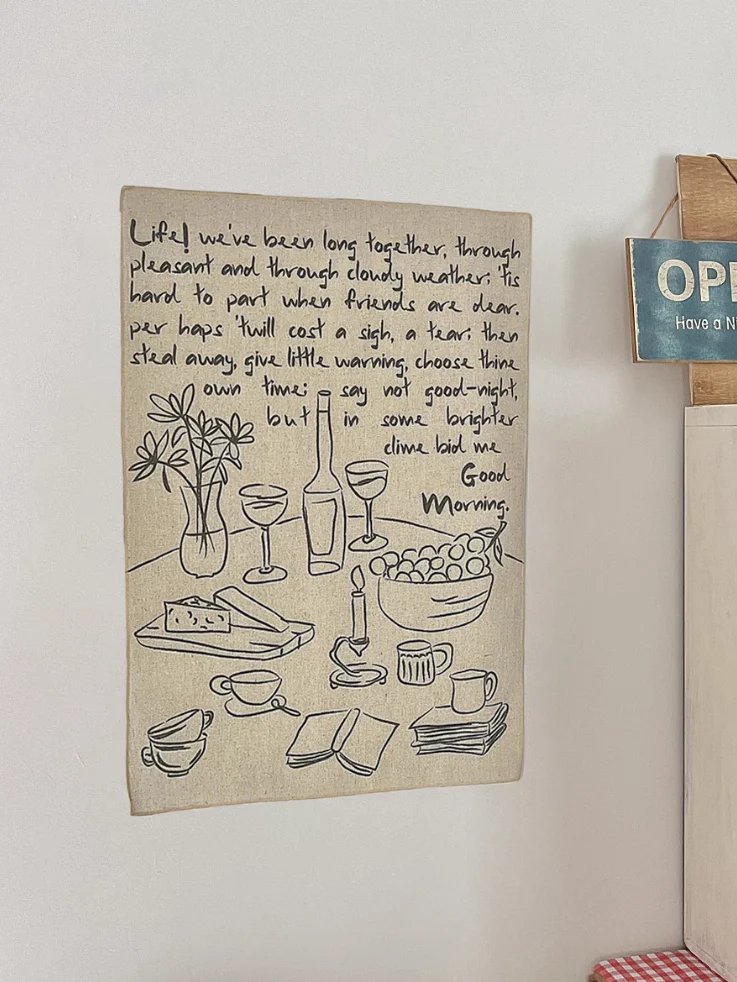 Life! we've been long together, through
pleasant and through cloudy weather; 'tis
hard to part when friends are dear.
per haps 'twill cost a sigh, a tear; then
steal away, give little warning, choose thine
own time; say not good-night,
but in some brighter
clime bid me
Good
Morning.
OPE
Have a Ni